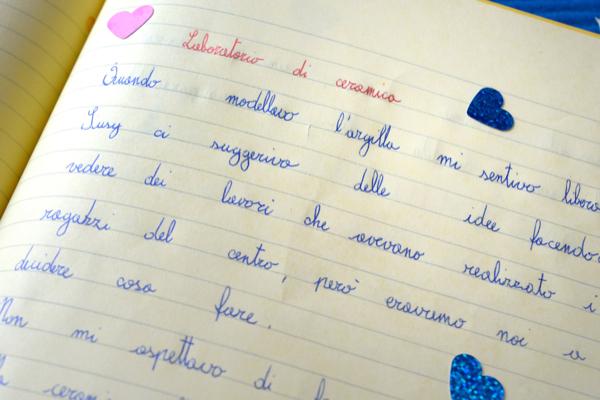 Laboratorio di ceramica
Quando modellavo l'argilla mi sentivo libero
Susy ci suggeriva delle idee facendo
vedere dei lavori che avevano realizzato i
ragazzi del centro, però eravamo noi a
decidere cosa fare.
Non mi aspettavo di